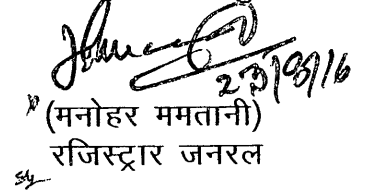 23/8/16
(मनोहर ममतानी)
रजिस्ट्रार जनरल